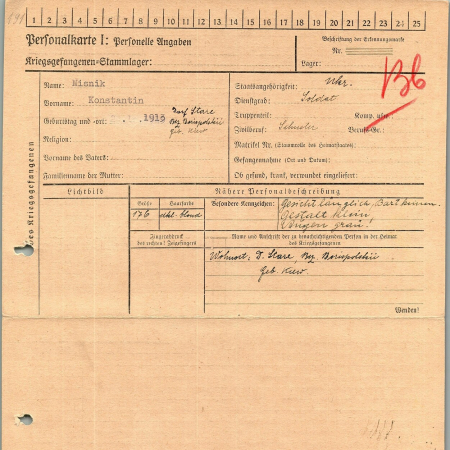 1 2 3 4 5 6 7 8 9 10 11 12 13 14 15 16 17 18 19 20 21 22 23 24 25
Personalkarte I: Personelle Angaben
Beschriftung der Erkennungsmarke
Nr.
Kriegsgefangenen-Stammlager:
Lager:
Bb
Name: Misnik
Vorname: Konstantin
Geburtstag und -ort: 1913 Dorf Stare
Bez. Borispolskii
geb. Kiew
Religion:
Vorname des Vaters:
Familienname der Mutter:
Staatsangehörigkeit: Ukr.
Dienstgrad: Soldat
Truppenteil: Komp. usw.
Zivilberuf: Berufs-Gr.:
Matrikel Nr. (Stammrolle des Heimatstaates)
Gefangennahme (Ort und Datum):
Ob gesund, krank, verwundet eingeliefert:
des Kriegsgefangenen
Lichtbild
Nähere Personalbeschreibung
Größe Haarfarbe
176 dkl. blond
Besondere Kennzeichen: Gesicht länglich,
Gestalt klein,
Augen grau.
Fingerabdruck
des rechten! Zeigefingers
Name und Anschrift der zu benachrichtigenden Person in der Heimat
des Kriegsgefangenen
Wohnort: D. Stare, Bez. Borispolskii
Geb. Kiew
Wenden!